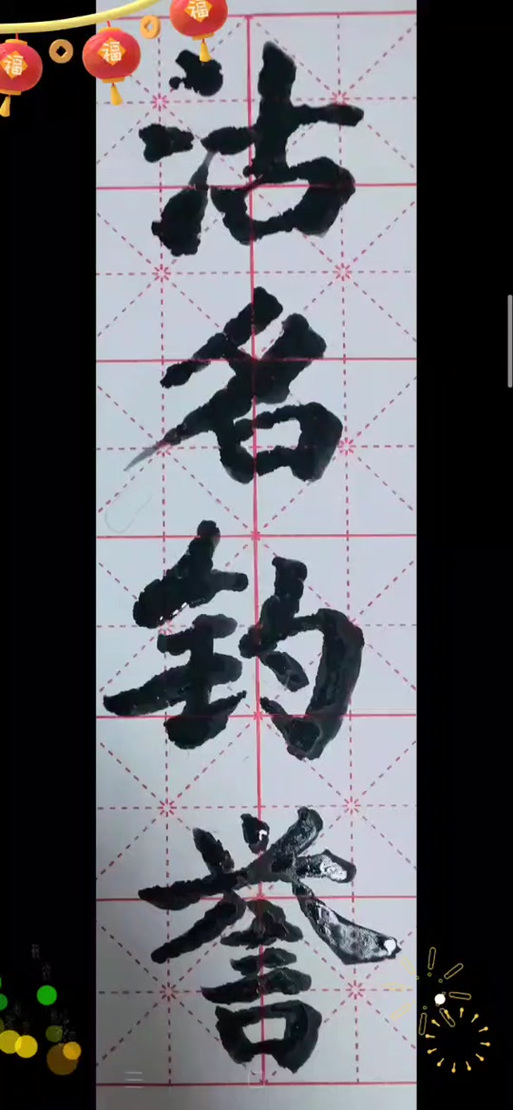 福
福
福
沽名钓誉